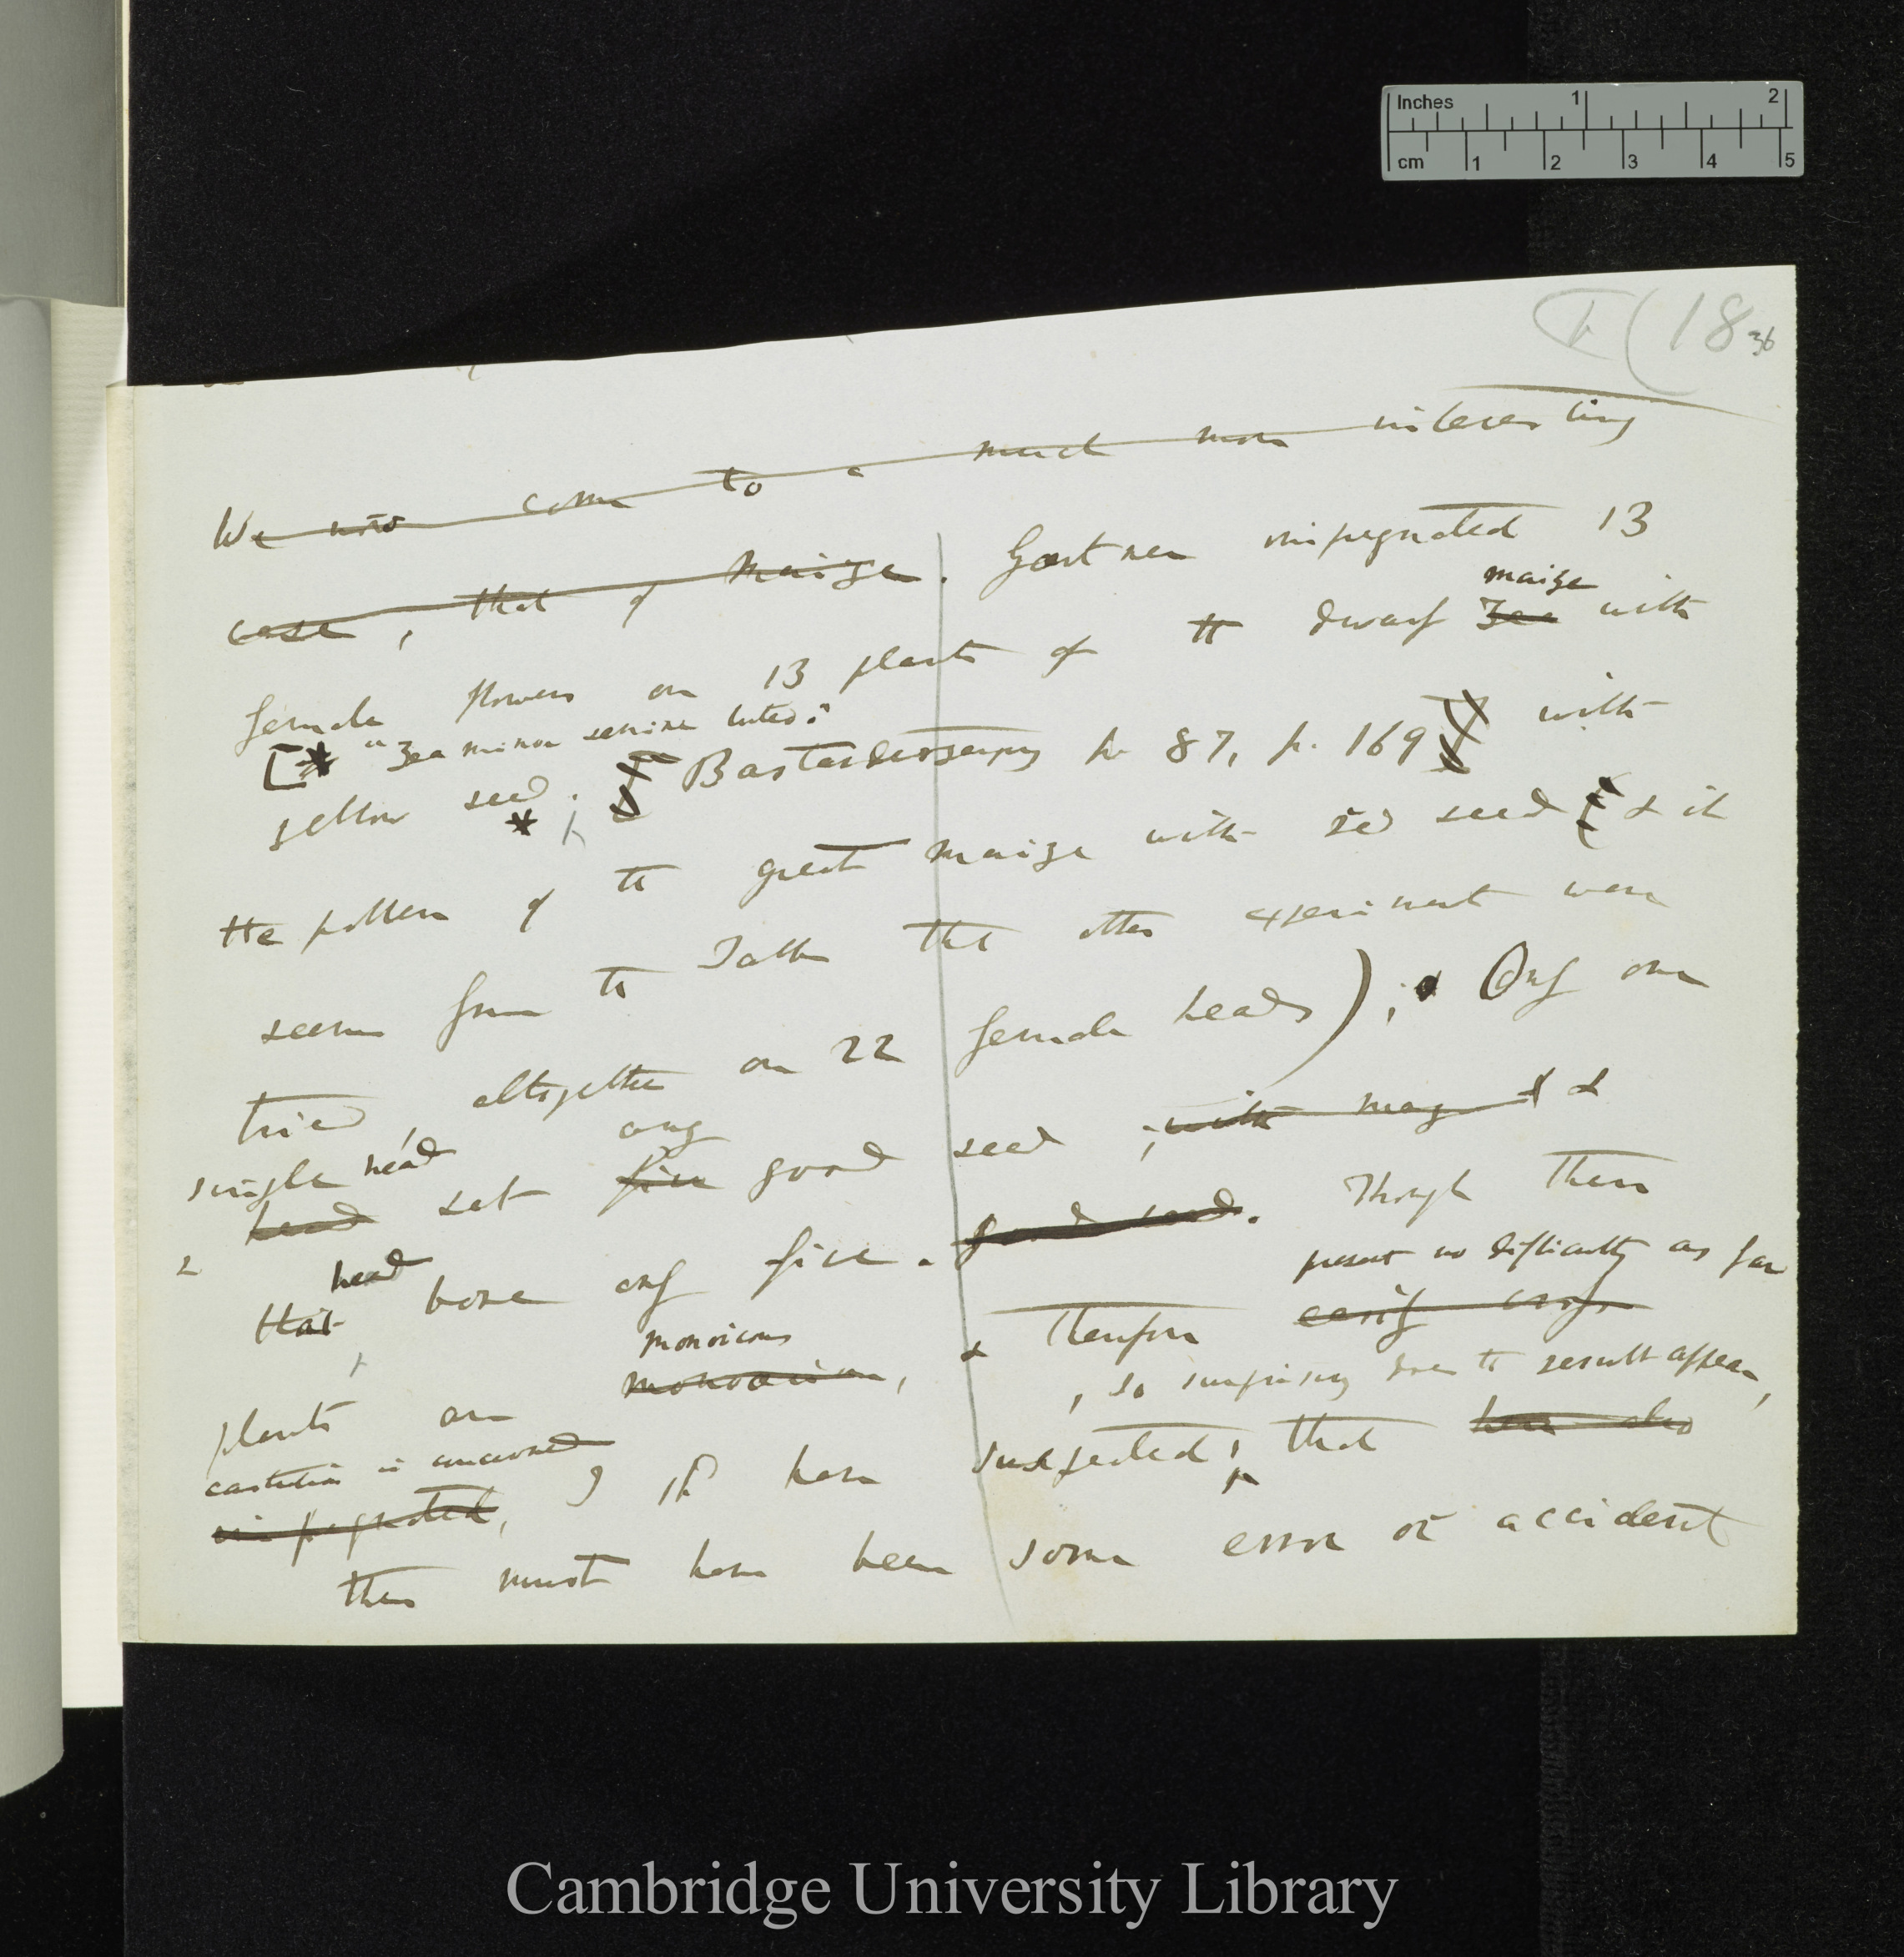 Inches 1 2
cm 1 2 3 4 5
(18 36
We now come to a much more interesting
case, that of Maize. Gærtner impregnated 13
maize
female flowers on 13 plants of tt dwarf Zea with
[* "Zea minor semine luteo:"
yellow seed; [Bastarderzeugung p. 87, p. 169] with
*
the pollen of tt great maize with red seed (& it
seems from tt Table that other experiment were
tried, altogether on 22 female heads); Only one
single head only
head set five good seed; with &
& head
that bore only five. good seed. Though these
present no difficulty as far
monoicous
plants are monoecious, & therefore easily cross
castration is concerned , so surprising does tt result appear,
impregnated, I shd have suspected, that here also
there must have been some error or accident
Cambridge University Library